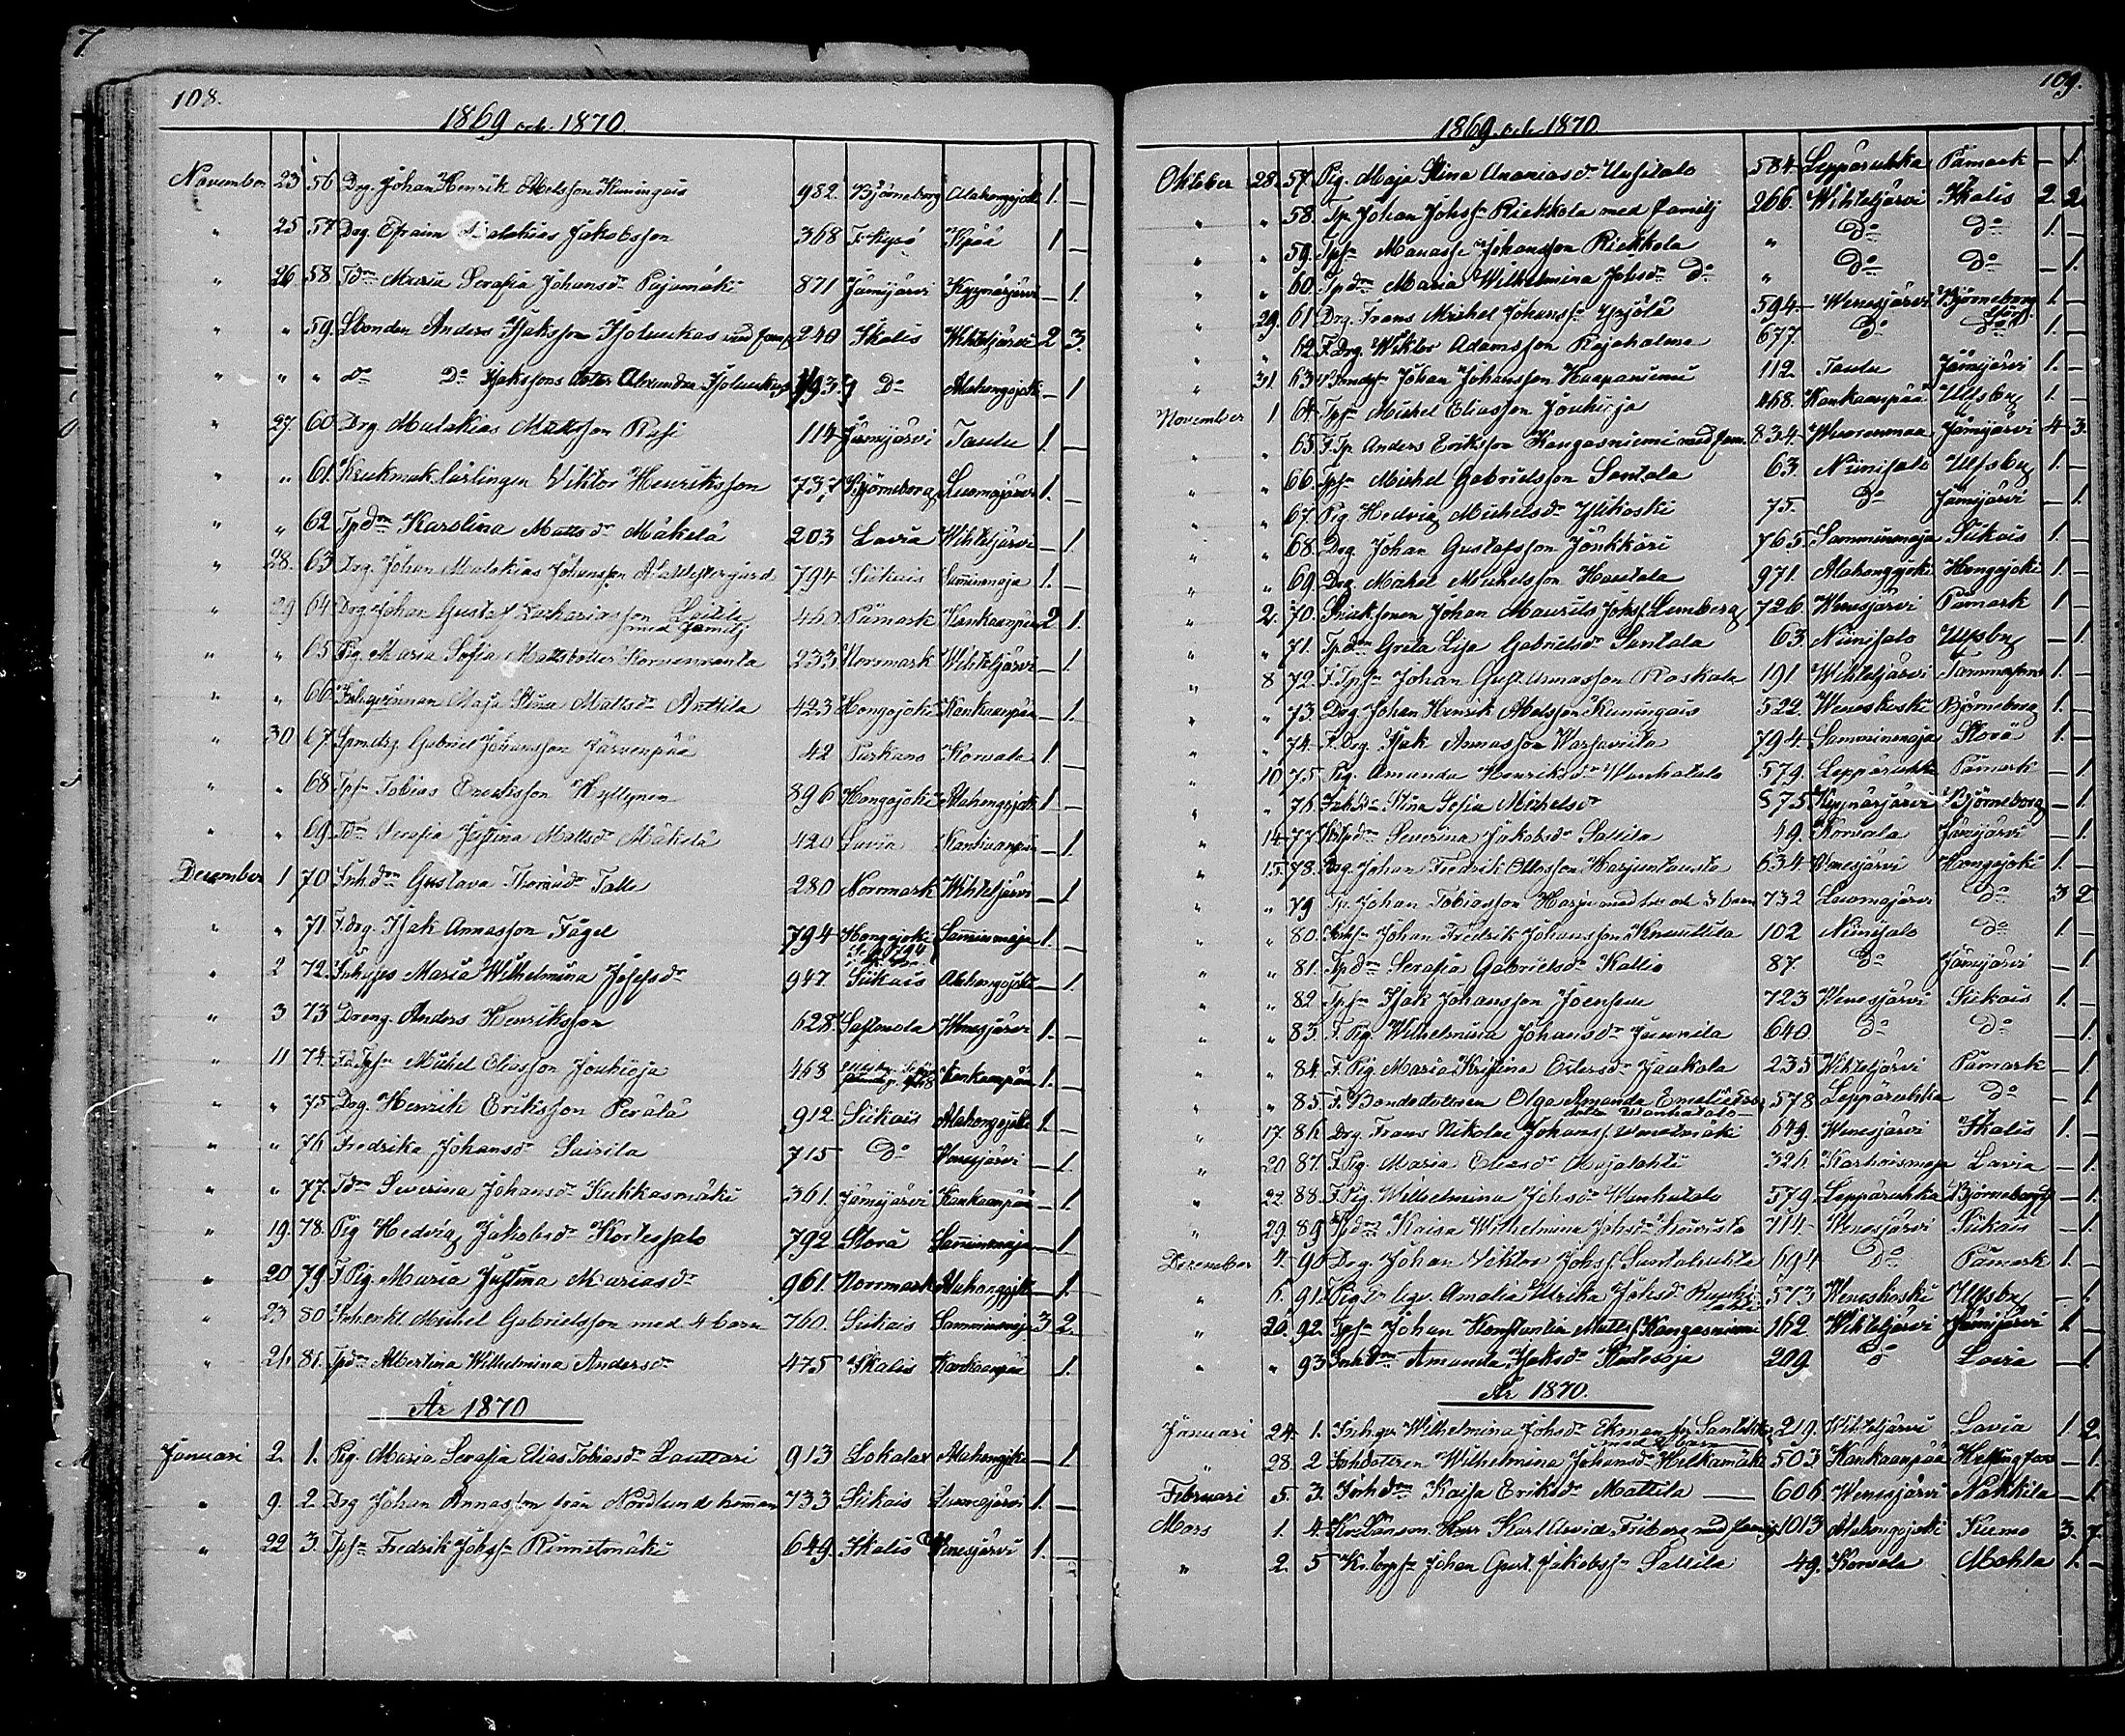 7
108.
1869 och 1870.
November 23 56 Drg. Johan Henrik Abelsson Kuningais 982. Björneborg Alahongojoki 1. —
" 25 57 Drg Efraim Malakias Jakobsson 368 F. Kyrö Kypää 1 —
" 26 58. Tdr Maria Serafia Johansdr Pajamäki 871 Jämijärvi Kyynärjärvi — 1.
" " 59. Bonden Anders Isaksson Isoluukas med familj 240 Ikalis Wihteljärvi 2 3.
" " " do Do Isakssons dotter Alexandra Isoluukas Do Alahongojoki — 1
" 27 60 Drg Malakias Mattsson Rusi 114 Jämijärvi Taulu 1. —
" " 61. Krukmak. lärlingen Viktor Henriksson 737 Björneborg Luomajärvi 1. —
" " 62 Tpdr Karolina Mattsdr Mäkelä 203 Lavia Wihteljärvi — 1.
" 28. 63 Drg. Johan Malakias Johansson Alawestergård 794 Siikais Samminmaja 1. —
" 29 64 Drg Johan Gustaf Zachariasson Leitile med familj 460 Påmark Kankaanpää 2 1.
" " 65 Pig. Maria Sofia Mattsdotter Korvenranta 233 Norrmark Wihteljärvi — 1
" " 66 Inhyseqvinnan Maja Stina Mattsdr Anttila 423 Hongojoki Kankaanpää — 1.
" 30 67. Spmdrg. Gabriel Johansson Järvenpää 42 Parkano Korvala 1 —
" " 68. Tpsn Tobias Henriksson Kyllynen 896 Hongojoki Alahongojoki 1 —
" " 69. Tdr Serafia Justina Mattsdr Mäkelä 420 Lavia Kankaanpää — 1.
December 1 70 Inhdr Gustava Thomasdr Talli 280 Norrmark Wihteljärvi — 1
" " 71 F.drg. Isak Annasson Fågel 794 Hongojoki Samminmaja 1. —
" 2 72. Inhyses Maria Wilhelmina Josefsdr 947. Siikais Alahongojoki — 1.
" 3 73 Dreng Anders Henriksson 628 Sastmola Wenesjärvi 1. —
" 11 74. Fd Tpsn Mikael Eliasson Jouhioja 468 Kankaanpää 1. —
" " 75 Drg. Henrik Eriksson Perälä 912 Siikais Alahongojoki 1. —
" " 76 Fredrika Johansdr Suirila 715 Do Wenesjärvi — 1.
" " 77. Tdr Severina Johansdr Kuhkasmäki 361. Jämijärvi Kankaanpää — 1.
" 19. 78. Pig Hedvig Jakobsdr Kortessalo 792 Storå Samminmaja — 1
" 20 79 F. Pig. Maria Justina Mariasdr 961. Norrmark Alahongojoki — 1.
" 23 80 Inh. enkl. Mickel Gabrielsson med 4 barn 760. Siikais Samminmaja 3 2.
" 21. 81. Tpdr Albertina Wilhelmina Andersdr 475 Ikalis Kankaanpää 1.
År 1870
Januari 2. 1. Pig. Maria Serafia Elias Tobiasdr Lauttari 913 Lokalax Alahongojoki — 1
" 9. 2. Drg Johan Annasson från Nordlunds hemman 733 Siikais Luomajärvi 1. —
" 22 3. Tpsn Fredrik Johssn Rinnetmäki 649. Ikalis Wenesjärvi 1. —
109.
1869 och 1870
Oktober 28. 57. Pig. Maja Stina Ananiasdr Uusitalo 584 Leppäruhka Påmark — 1.
" " 58. Tp. Johan Johssn Riekkola med familj 266 Wihteljärvi Ikalis 2 2
" " 59. Tpsn Manasse Johansson Riekkola " Do Do 1. —
" " 60. Tpdr Maria Wilhelmina Johsdr Do " Do Do — 1.
" 29. 61 Drg. Frans Mickel Johanssn Yrjölä 594. Wenesjärvi Björneborg 1. —
" " 62 F. Drg. Wiktor Adamsson Rajaholma 677. Do Do 1. —
" 31. 63 Johan Johansson Haapaniemi 112 Taulu Jämijärvi 1. —
November 1 64. Tpsn Mickel Eliasson Jouhioja 468. Kankaanpää Ulfsby 1. —
" " 65. F. Tp. Anders Eriksson Kangasniemi med fam. 834. Wuorenmaa Jämijärvi 4 3.
" " 66. Tpsn Mickel Gabrielsson Santala 63. Niinisalo Ulfsby 1. —
" " 67. Pig. Hedvig Mickelsdr Ylikoski 75. Do Jämijärvi — 1.
" " 68. Drg. Johan Gustafsson Jönkkäri 765. Samminmaja Siikais 1. —
" " 69. Drg. Mickel Mickelsson Hautala 971. Alahongojoki Hongojoki 1. —
" 2. 70. Johan Maurits Johss. Lemberg 726. Wenesjärvi Påmark 1 —
" " 71. Tpdr Greta Lisa Gabrielsdr Santala 63. Niinisalo Ulfsby — 1.
" 8 72. F. Tpsn Johan Gust. Annasson Raskala 191. Wihteljärvi Tammerfors 1. —
" " 73. Drg. Johan Henrik Abelsson Kuningais 522. Weneskoski Björneborg 1. —
" " 74. F. Drg. Isak Annasson Warsaviita 794. Samminmaja Storå 1. —
" 10 75. Pig. Amanda Henriksdr Wanhatalo 579. Leppäruhka Påmark — 1
" " 76. Inhdr Stina Sofia Mickelsdr 875 Kyynärjärvi Björneborg — 1.
" 14 77. Severina Jakobsdr Sallila 49. Korvala Jämijärvi — 1.
" 15. 78. Drg. Johan Fredrik Ottosson Harjuntausta 634. Wenesjärvi Hongojoki 1. —
" " 79 Tp. Johan Tobiasson Harju med hu och 3 barn 732 Luomajärvi Do 3 2
" " 80. Inhsn Johan Fredrik Johansson Knuuttila 102 Niinisalo Do 1 —
" " 81. Tpdr Serafia Gabrielsdr Kallio 87. Do Jämijärvi — 1.
" " 82 Tpsn Isak Johansson Joensuu 723 Wenesjärvi Siikais 1. —
" " 83. F. Pig. Wilhelmina Johansdr Jaennila 640. Do Do — 1.
" " 84. F. Pig. Maria Kristina Estersdr Jaakola 235 Wihteljärvi Påmark — 1
" " 85. F. Bondedottren Olga Amanda Emelietsdotter Wanhatalo 578 Leppäruhka Do — 1
" 17. 86. Drg. Frans Nikolai Johanss. Wenetmäki 649. Wenesjärvi Ikalis 1. —
" 20 87. F. Pig. Maria Eliasdr Majalahti 326. Karhoismaja Lavia — 1.
" 22. 88. F. Pig. Wilhelmina Johsdr Wanhatalo 579. Leppäruhka Björneborg — 1.
" 29. 89 Tpdr Kaisa Wilhelmina Johsdr 714 Wenesjärvi Siikais — 1.
December 4. 90 Drg. Johan Viktor Johss. Santaluhta 694 Do Påmark 1. —
" 6. 91. Amalia Ulrika Johsdr 573 Weneskoski Ulfsby — 1.
" 20. 92. Tpsn Johan Konstantin Mattss. Kangasniemi 162. Wihteljärvi Jämijärvi 1 —
" " 93 Inhdr Amanda Isaksdr 209. Do Lavia — 1
År 1870.
Januari 24 1. Wilhelmina Johsdr Ekman med 2 barn 219. Wihteljärvi Lavia 1 2
" 28. 2 Inhdottren Wilhelmina Johansdr Helkamäki 503 Kankaanpää Helsingfors — 1.
Februari 5. 3. Inhdr Kaisa Eriksdr Mattila — 606. Wenesjärvi Nakkila — 1.
Mars 1. 4. Herr Karl Arvid Friberg med familj 1013 Alahongojoki Kumo 3. 7.
" 2. 5 Johan Gust. Jakobssn Sallila 49. Korvala Mohla 1. —